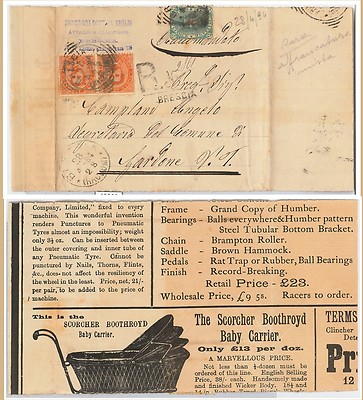 28/4/90
Raccomandato
R
BRESCIA
Campland Angelo
Segretario del Comune di
Gardone V. T.
Company, Limited," fixed to every
machine. This wonderful invention
renders Punctures to Pneumatic
Tyres almost an impossibility; weight
only 3½ ozs. Can be inserted between
the outer covering and inner tube of
any Pneumatic Tyre. Cannot be
punctured by Nails, Thorns, Flints,
&c., does not affect the resiliency of
the wheel in the least. Price, net, 21/-
per pair, to be added to the price of
machine.
Frame - Grand Copy of Humber.
Bearings - Balls everywhere & Humber pattern
Steel Tubular Bottom Bracket.
Chain - Brampton Roller.
Saddle - Brown Hammock.
Pedals - Rat Trap or Rubber, Ball Bearings
Finish - Record-Breaking.
Retail Price - £23.
Wholesale Price, £9 5s. Racers to order.
This is the
SCORCHER BOOTHROYD
Baby Carrier.
The Scorcher Boothroyd
Baby Carrier.
Only £13 per doz.
A MARVELLOUS PRICE.
Not less than ½-dozen must be
ordered of this line. English Selling
Price, 38/- each. Handsomely made
and finished Wicker Body. 18½ and
TERMS
Pr
12